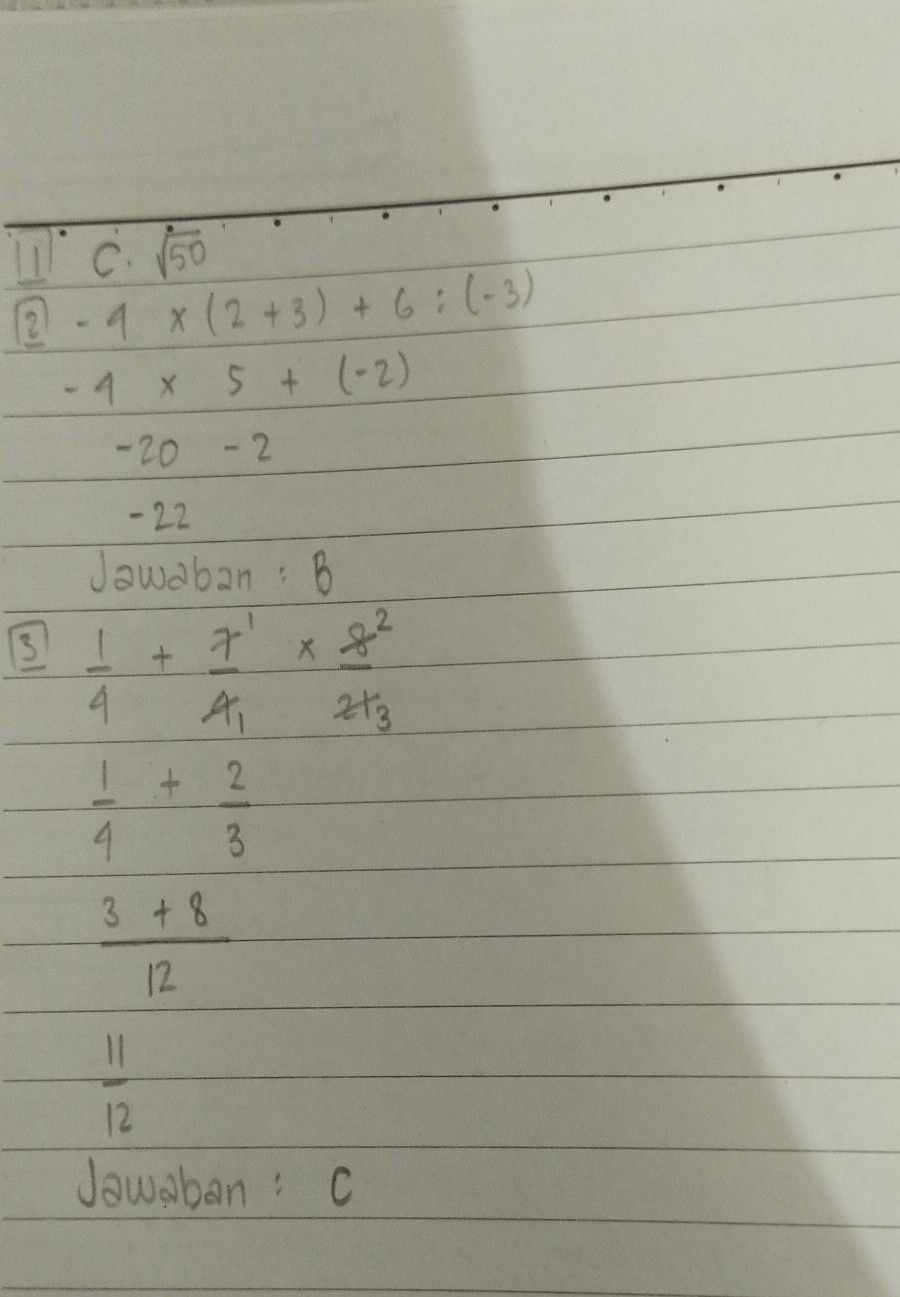 1 C. √50
2 -4 × (2 + 3) + 6 : (-3)
-4 × 5 + (-2)
-20 - 2
-22
Jawaban : B
3 1/4 + 7¹/4₁ × 8²/21₃
1/4 + 2/3
3 + 8
12
11
12
Jawaban : C